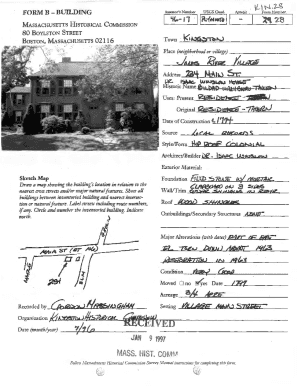 FORM B – BUILDING
MASSACHUSETTS HISTORICAL COMMISSION
80 BOYLSTON STREET
BOSTON, MASSACHUSETTS 02116
KIN.28
Assessor's number USGS Quad Area(s) Form Number
76-17 PLYMOUTH 28
Town KINGSTON
Place (neighborhood or village)
JONES RIVER VILLAGE
Address 284 MAIN ST.
Historic Name DR. ISAAC WINSLOW HOUSE
TAVERN
Uses: Present RESIDENCE
Original RESIDENCE - TAVERN
Date of Construction
Source LOCAL RECORDS
Style/Form COLONIAL
Architect/Builder DR. ISAAC WINSLOW
Exterior Material:
Foundation FIELD STONE W/ MORTAR
Wall/Trim CLAPBOARD ON 3 SIDES
Roof WOOD SHINGLES
Outbuildings/Secondary Structures NONE
Major Alterations (with dates) PART OF
EL TORN DOWN ABOUT 1963
RESTORATION IN 1963
Condition VERY GOOD
Moved no yes Date
Acreage 3/4 ACRE
Setting VILLAGE MAIN STREET
Sketch Map
Draw a map showing the building's location in relation to the
nearest cross streets and/or major natural features. Show all
buildings between inventoried building and nearest intersec-
tion or natural feature. Label streets including route numbers,
if any. Circle and number the inventoried building. Indicate
north.
MAIN ST (RT 106)
ELM
284
Recorded by GORDON MASSINGHAM
Organization KINGSTON HISTORICAL COMMISSION
Date (month/year)
RECEIVED
JAN 9 1997
MASS. HIST. COMM
Follow Massachusetts Historical Commission Survey Manual instructions for completing this form.